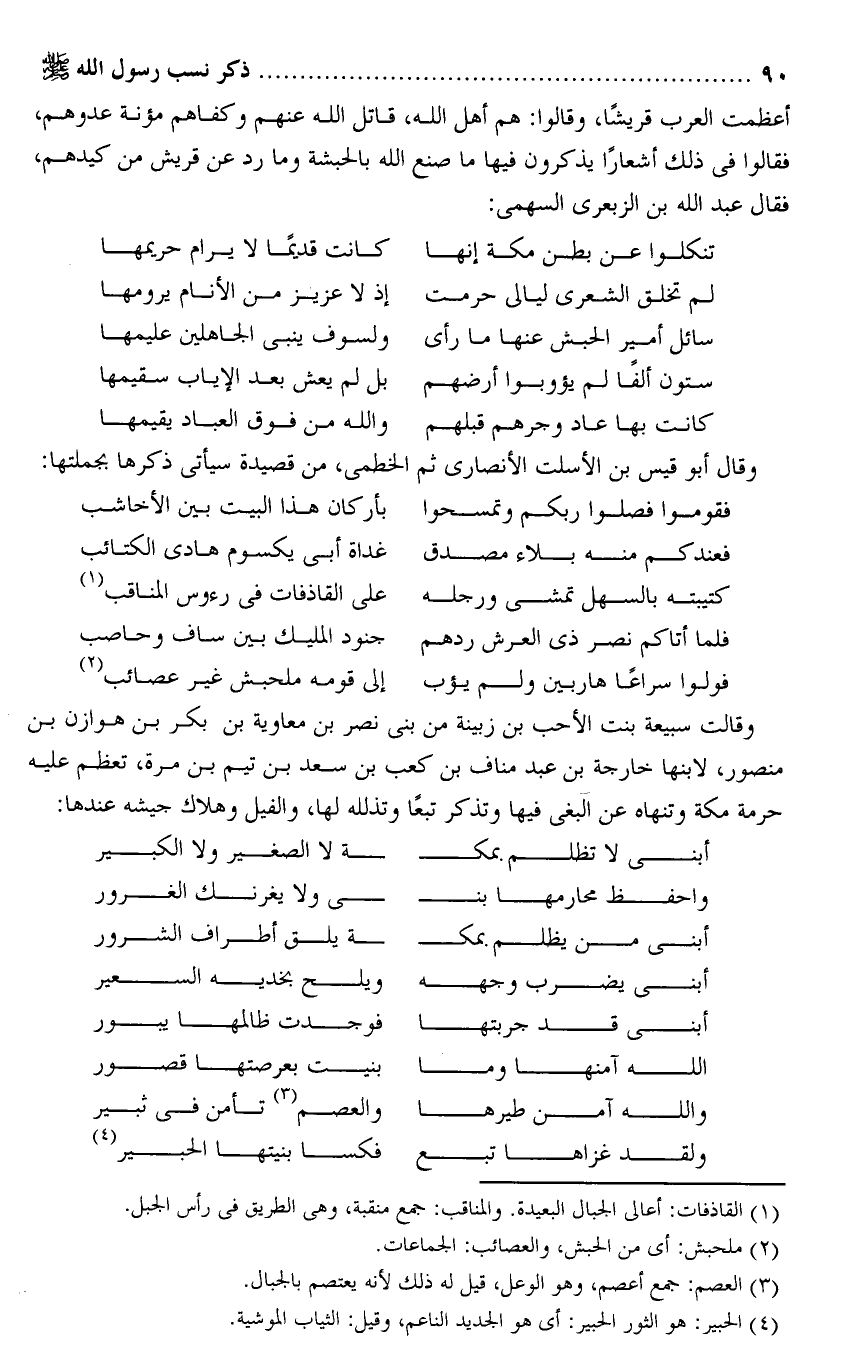 ٩٠ ............................................................ ذكر نسب رسول الله ﷺ
أعظمت العرب قريشًا، وقالوا: هم أهل الله، قاتل الله عنهم وكفاهم مؤنة عدوهم،
فقالوا فى ذلك أشعارًا يذكرون فيها ما صنع الله بالحبشة وما رد عن قريش من كيدهم،
فقال عبد الله بن الزبعرى السهمى:
تنكلوا عن بطن مكة إنها كانت قديمًا لا يرام حريمها
لم تخلق الشعرى ليالى حرمت إذ لا عزيز من الأنام يرومها
سائل أمير الحبش عنها ما رأى ولسوف ينبى الجاهلين عليمها
ستون ألفًا لم يؤوبوا أرضهم بل لم يعش بعد الإياب سقيمها
كانت بها عاد وجرهم قبلهم والله من فوق العباد يقيمها
وقال أبو قيس بن الأسلت الأنصارى ثم الخطمى، من قصيدة سيأتى ذكرها بجملتها:
فقوموا فصلوا ربكم وتمسحوا بأركان هذا البيت بين الأخاشب
فعندكم منه بلاء مصدق غداة أبى يكسوم هادى الكتائب
كتيبته بالسهل تمشى ورجله على القاذفات فى رءوس المناقب(١)
فلما أتاكم نصر ذى العرش ردهم جنود المليك بين ساف وحاصب
فولوا سراعًا هاربين ولم يؤب إلى قومه ملحبش غير عصائب(٢)
وقالت سبيعة بنت الأحب بن زبينة من بنى نصر بن معاوية بن بكر بن هوازن بن
منصور، لابنها خارجة بن عبد مناف بن كعب بن سعد بن تيم بن مرة، تعظم عليه
حرمة مكة وتنهاه عن البغى فيها وتذكر تبعًا وتذلله لها، والفيل وهلاك جيشه عندها:
أبنى لا تظلم بمكـ ـة لا الصغير ولا الكبير
واحفظ محارمها بنـ ـى ولا يغرنك الغرور
أبنى من يظلم بمكـ ـة يلق أطراف الشرور
أبنى يضرب وجهه ويلح بخديه السعير
أبنى قد جربتها فوجدت ظالمها يبور
الله آمنها وما بنيت بعرصتها قصور
والله آمن طيرها والعصم(٣) تأمن فى ثبير
ولقد غزاها تبع فكسا بنيتها الحبير(٤)
(١) القاذفات: أعالى الجبال البعيدة. والمناقب: جمع منقبة، وهى الطريق فى رأس الجبل.
(٢) ملحبش: أى من الحبش، والعصائب: الجماعات.
(٣) العصم: جمع أعصم، وهو الوعل، قيل له ذلك لأنه يعتصم بالجبال.
(٤) الحبير: هو الثور الحبير: أى هو الجديد الناعم، وقيل: الثياب الموشية.